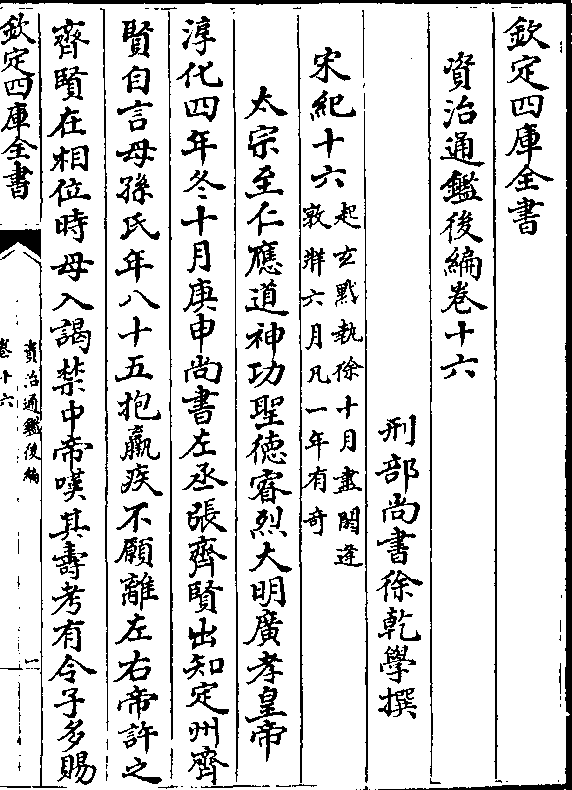 欽定四庫全書
資治通鑑後編卷十六
刑部尚書徐乾學撰
宋紀十六起玄黓執徐十月盡閼逢
敦牂六月凡一年有奇
太宗至仁應道神功聖德睿烈大明廣孝皇帝
淳化四年冬十月庚申尚書左丞張齊賢出知定州齊
賢自言母孫氏年八十五抱羸疾不願離左右帝許之
齊賢在相位時母入謁禁中帝嘆其壽考有令子多賜
欽定四庫全書
資治通鑑後編
卷十六
一